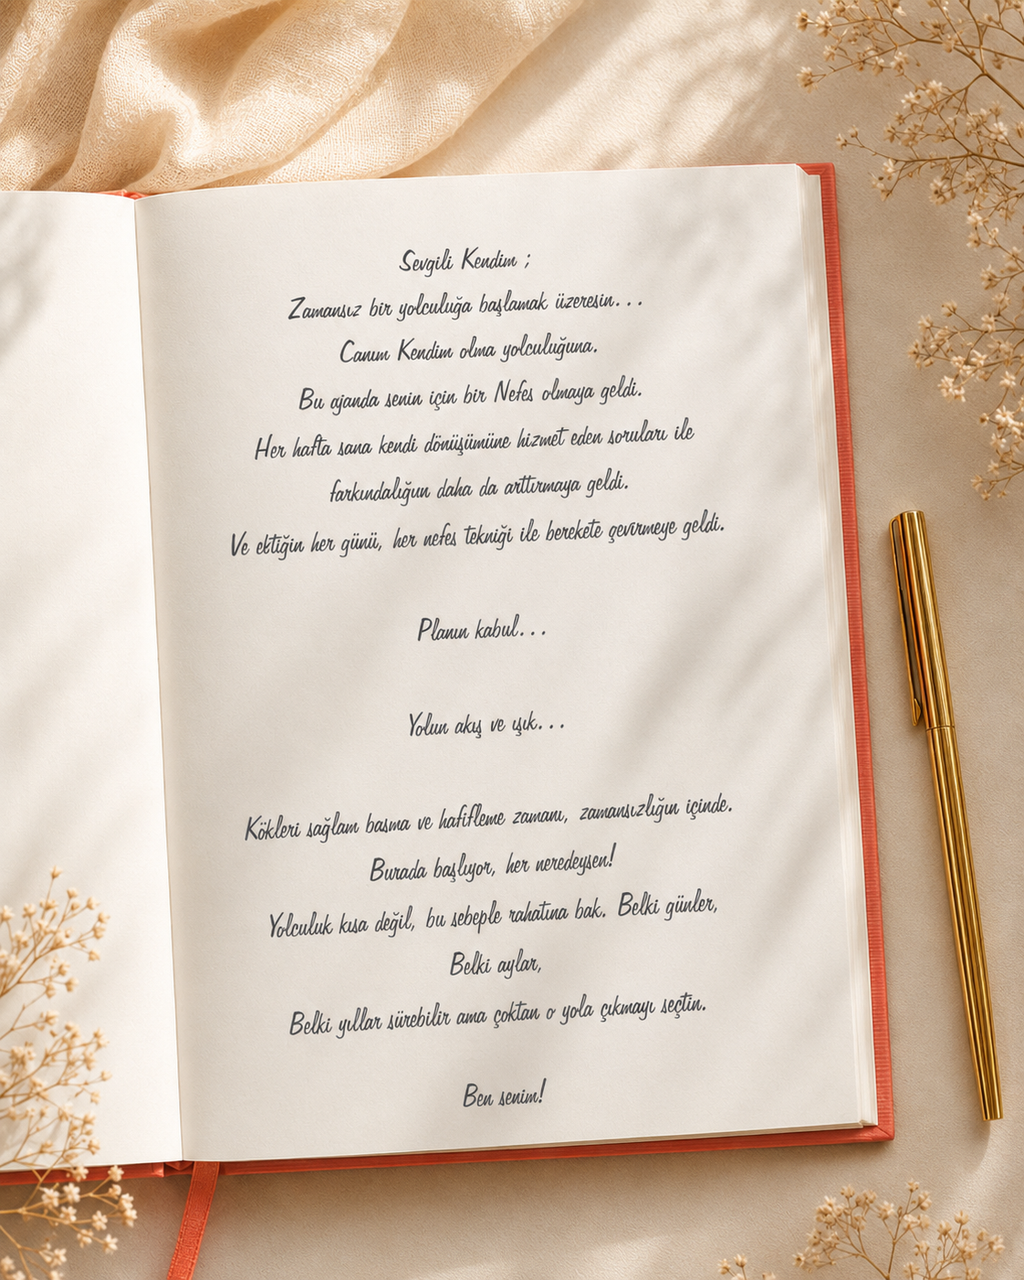 Sevgili Kendim ;
Zamansız bir yolculuğa başlamak üzeresin...
Canım Kendim olma yolculuğuna.
Bu ajanda senin için bir Nefes olmaya geldi.
Her hafta sana kendi dönüşümüne hizmet eden soruları ile
farkındalığın daha da arttırmaya geldi.
Ve ektiğin her günü, her nefes tekniği ile berekete çevirmeye geldi.
Planın kabul...
Yolun akış ve ışık...
Kökleri sağlam basma ve hafifleme zamanı, zamansızlığın içinde.
Burada başlıyor, her neredeysen!
Yolculuk kısa değil, bu sebeple rahatına bak. Belki günler,
Belki aylar,
Belki yıllar sürebilir ama çoktan o yola çıkmayı seçtin.
Ben senim!